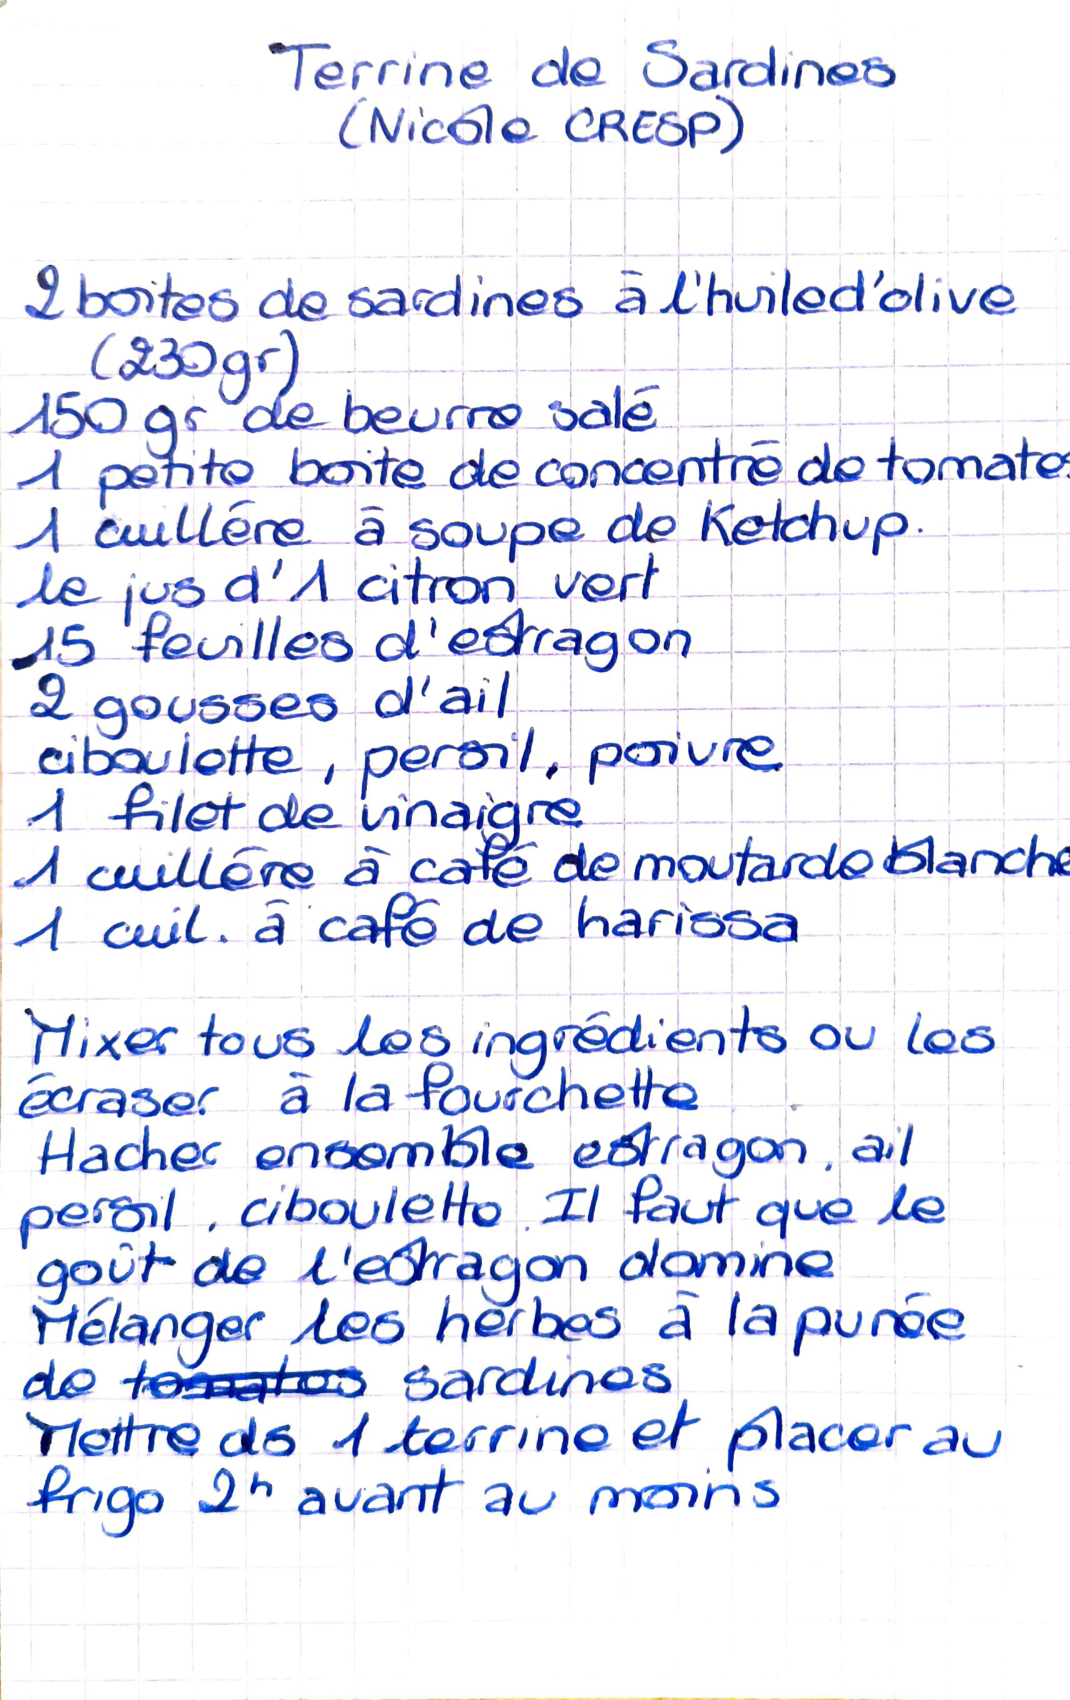 Terrine de Sardines
(Nicole CRESP)
2 boîtes de sardines à l'huile d'olive
(230 gr)
150 gr de beurre salé
1 petite boîte de concentré de tomates
1 cuillére à soupe de Ketchup.
le jus d'1 citron vert
15 feuilles d'estragon
2 gousses d'ail
ciboulette, persil, poivre
1 filet de vinaigre
1 cuillére à café de moutarde blanche
1 cuil. à café de harissa
Mixer tous les ingrédients ou les
écraser à la fourchette
Hacher ensemble estragon, ail
persil, ciboulette. Il faut que le
goût de l'estragon domine
Mélanger les herbes à la purée
de tomates sardines
Mettre ds 1 terrine et placer au
frigo 2h avant au moins